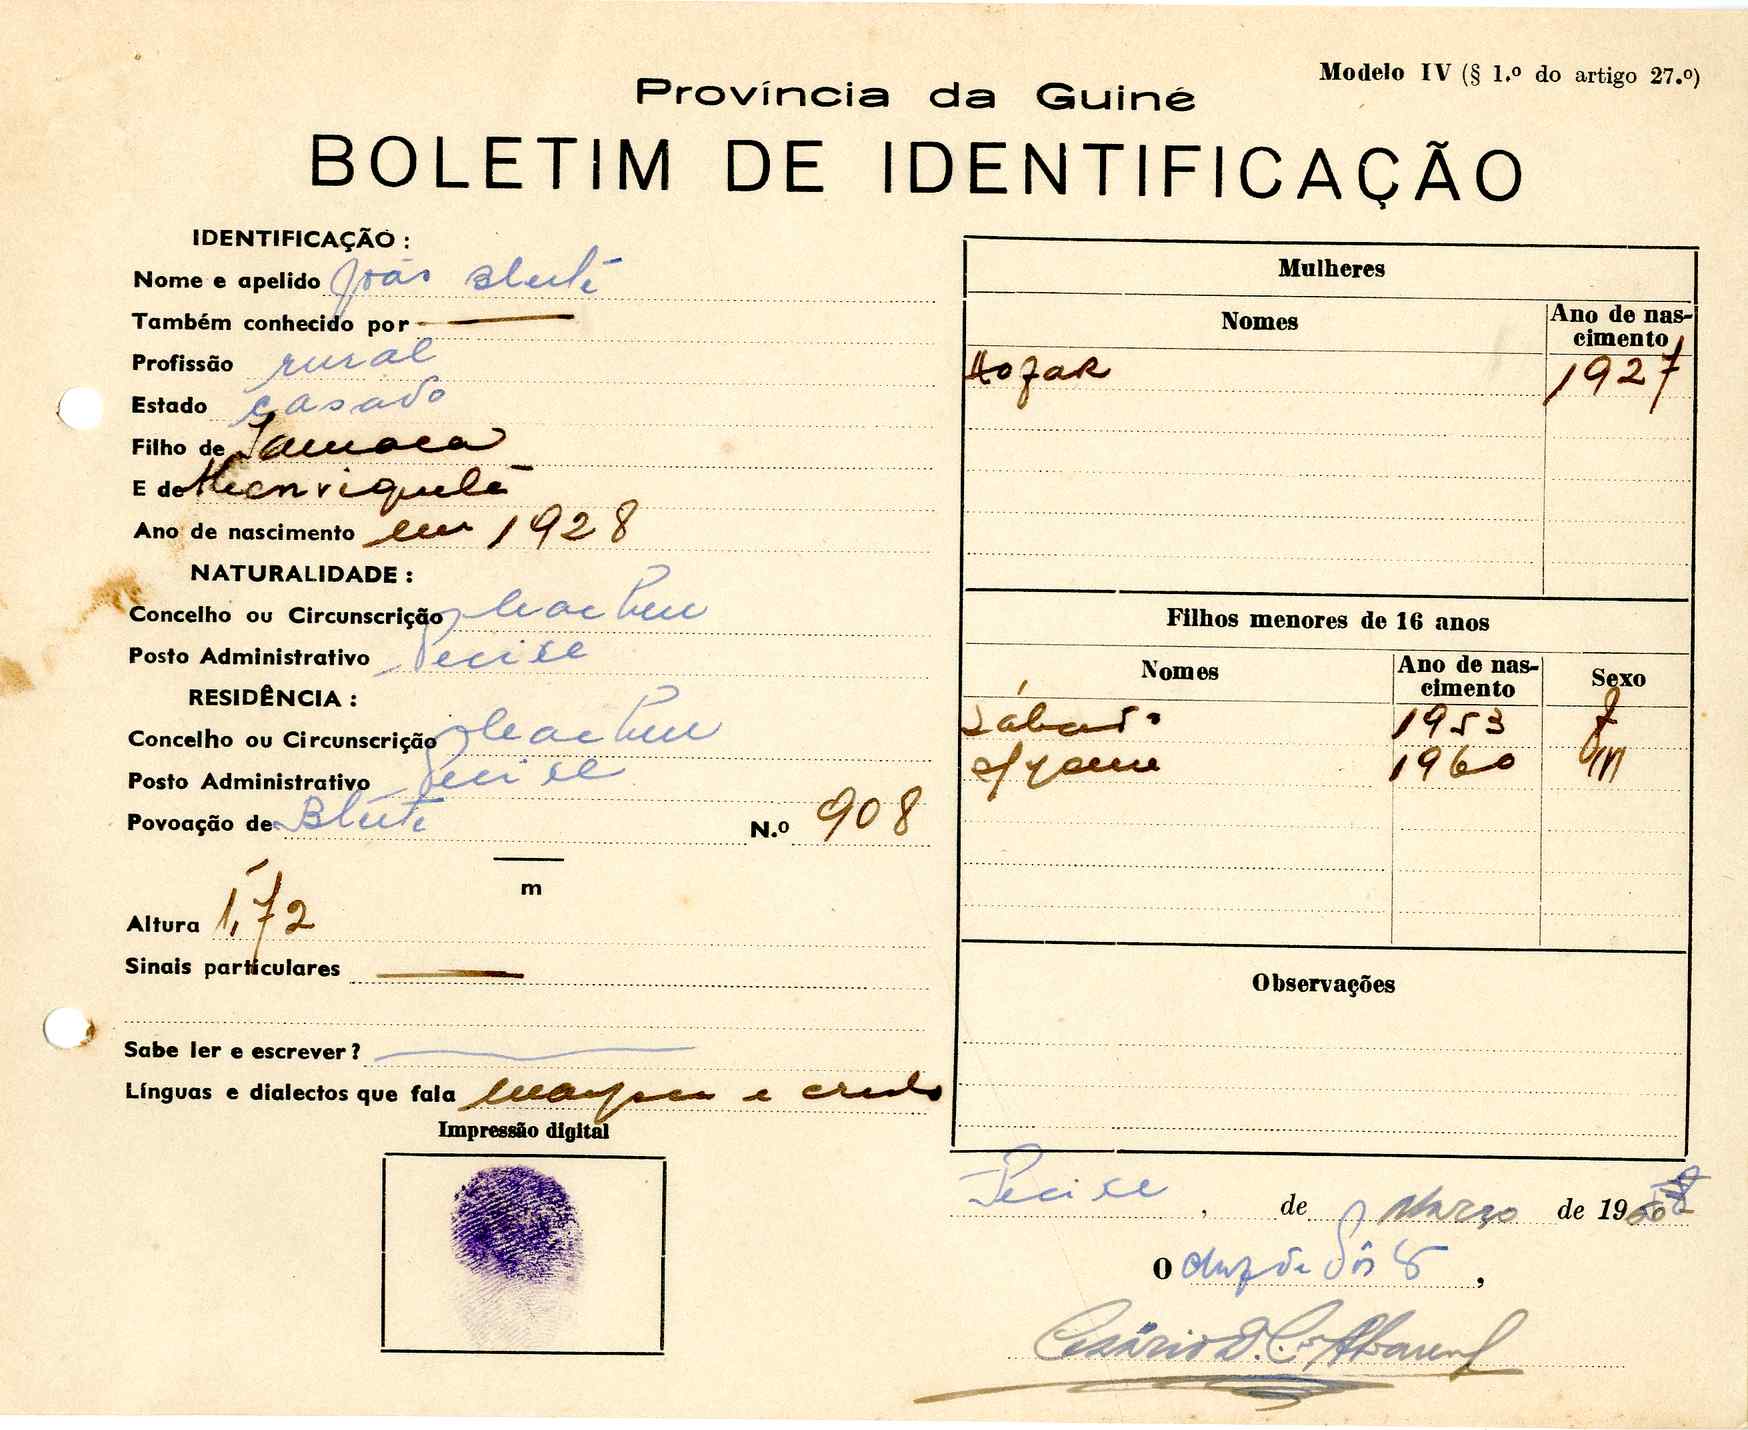 Modelo IV (§ 1.º do artigo 27.º)
Província da Guiné
BOLETIM DE IDENTIFICAÇÃO
IDENTIFICAÇÃO :
Nome e apelido João Bleuté
Também conhecido por
Profissão rural
Estado casado
Filho de
E de Henriqueta
Ano de nascimento em 1928
NATURALIDADE :
Concelho ou Circunscrição
Posto Administrativo Pecixe
RESIDÊNCIA :
Concelho ou Circunscrição
Posto Administrativo Pecixe
Povoação de N.º 908
m
Altura 1,72
Sinais particulares
Sabe ler e escrever ?
Línguas e dialectos que fala e creolo
Impressão digital
Mulheres
Nomes
Ano de nas-
cimento
1927
Filhos menores de 16 anos
Nomes
Ano de nas-
cimento
Sexo
1953 f
1960 m
Observações
Pecixe, de Março de 19
O
,